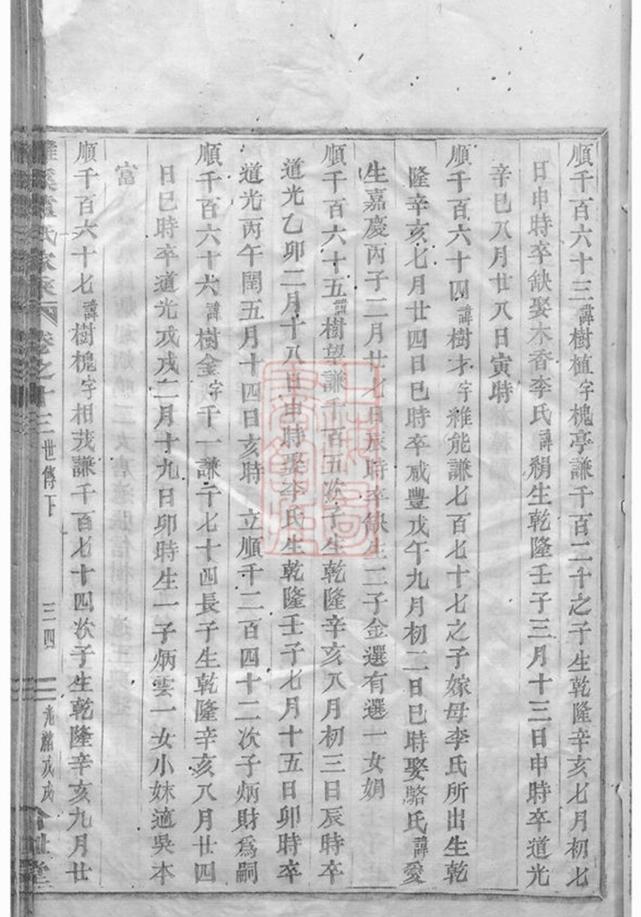 順千百六十三諱樹植字槐亭謙千百二十之子生乾隆辛亥七月初七
日申時卒缺娶木香李氏諱絹生乾隆壬子三月十三日申時卒道光
辛巳八月廿八日寅時
順千百六十四諱樹才字雅能謙七百七十七之子嫁母李氏所出生乾
隆辛亥七月廿四日巳時卒咸豐戊午九月初二日巳時娶駱氏諱愛
生嘉慶丙子二月廿七日辰時卒缺生二子金選有選一女娟
順千百六十五諱樹望謙千百五次子生乾隆辛亥八月初三日辰時卒
道光乙卯二月十八日申時娶李氏生乾隆壬子七月十五日卯時卒
道光丙午閏五月十四日亥時 立順千二百四十二次子炳財為嗣
順千百六十六諱樹金字千一謙千七十四長子生乾隆辛亥八月廿四
日巳時卒道光戊戌二月十九日卯時生一子炳雲一女小妹適吳本
富
順千百六十七諱樹槐字相茂謙千百七十四次子生乾隆辛亥九月廿
溪 氏家 卷之十三世傳下 三四 光緒戊戌 堂